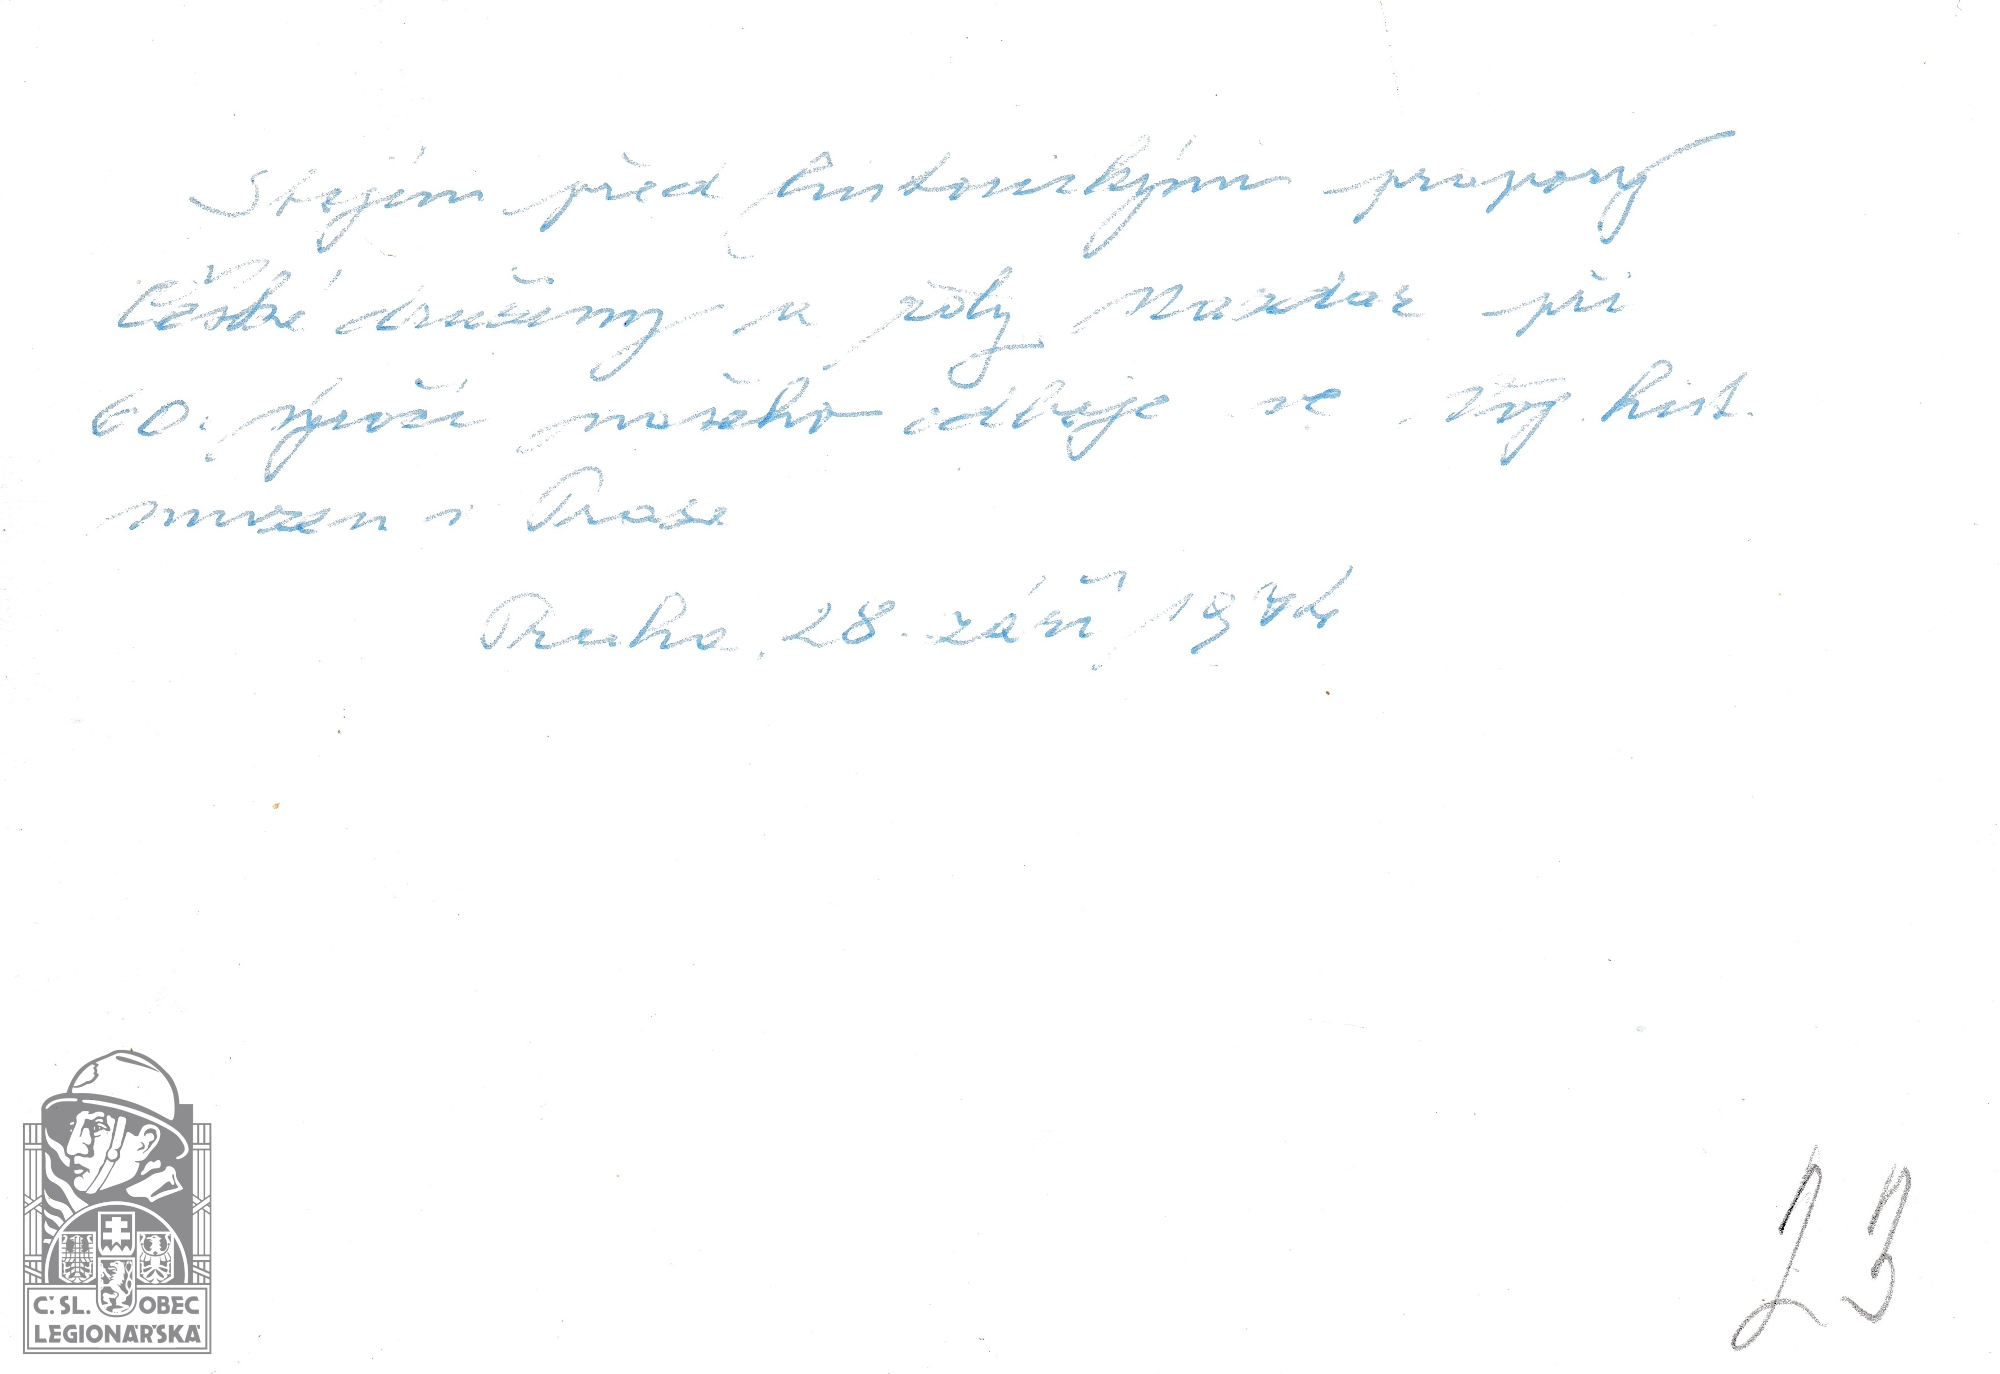 Stojím před historickými prapory
České družiny a roty Nazdar při
60. výročí našeho odboje ve Voj. hist.
muzeu v Praze
Praha, 28. září 1974
23
Č. SL. OBEC
LEGIONÁŘSKÁ